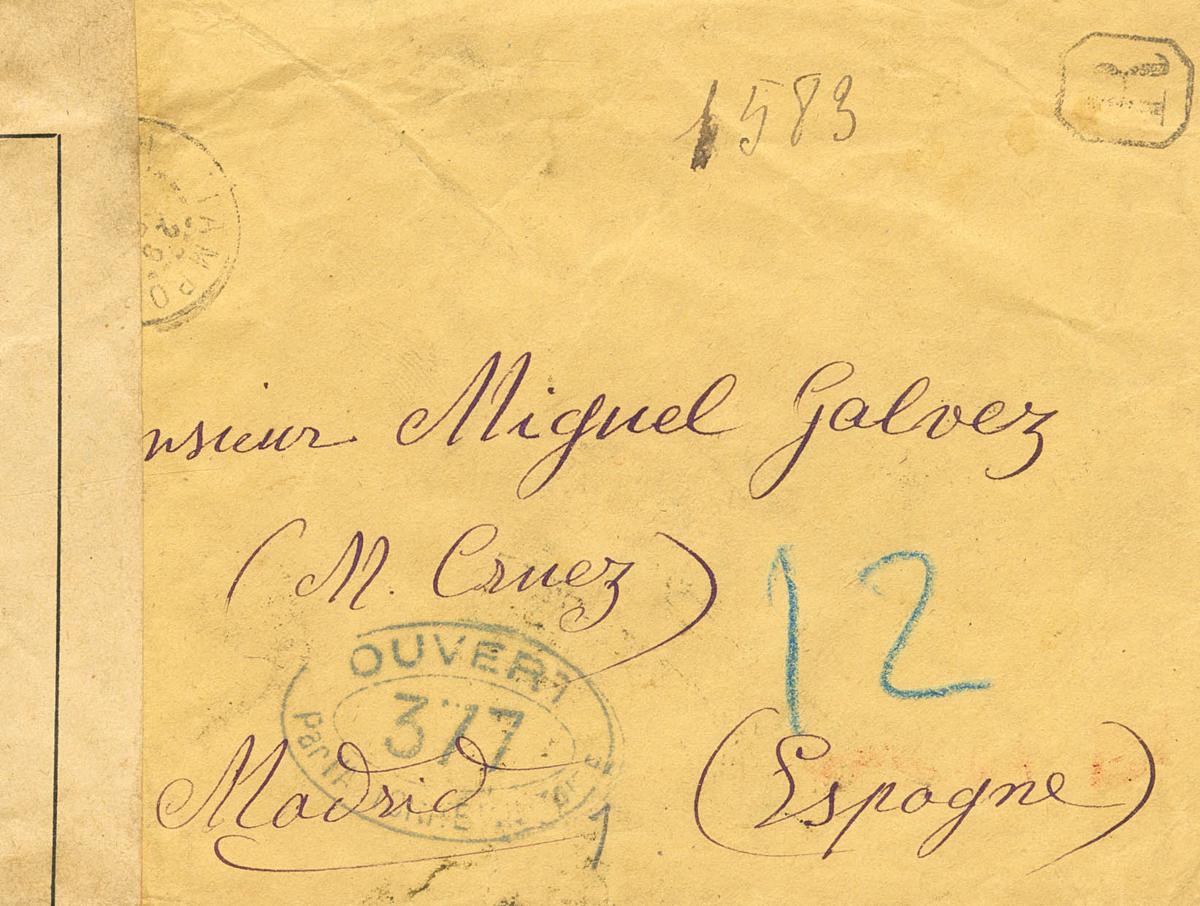 1583
R
IAMPO
nsieur Miguel Galvez
(M. Cruez)
12
OUVERT
377
Madrid (Espagne)
1